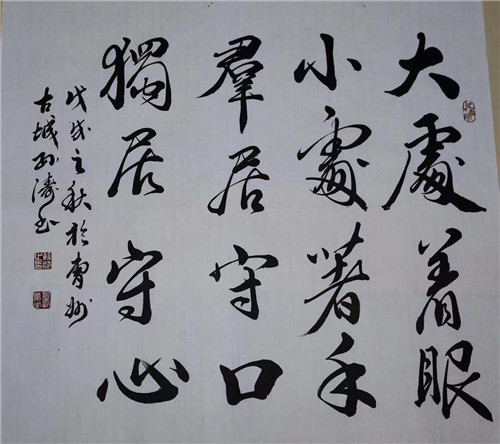 大處着眼
小處著手
羣居守口
獨居守心
戊戌之秋於曹州
古城孙濤书